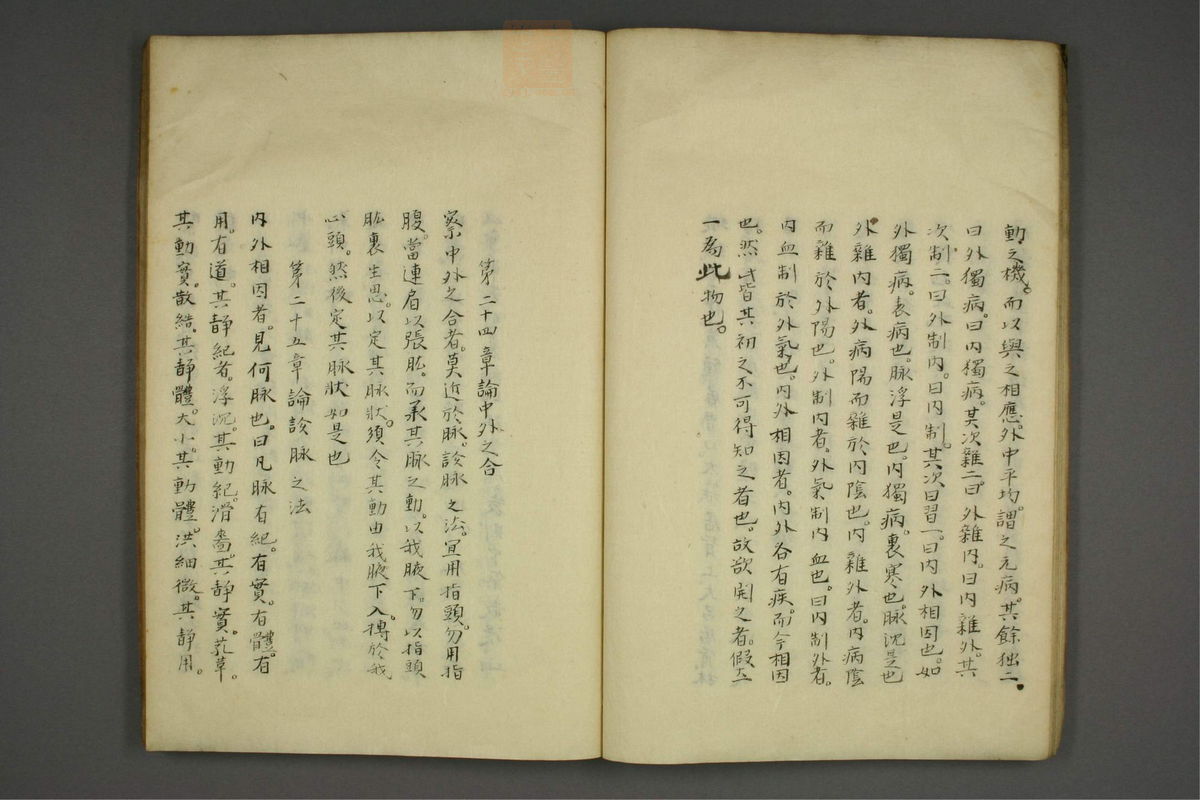 動之機。而以與之相應。外中平均。謂之无病。其餘拙二。
曰外獨病。曰内獨病。其次雜二。曰外雜内。曰内雜外。其
次制二。曰外制内。曰内制。其次曰習一。曰内外相因也。如
外獨病。表病也。脉浮是也。内獨病。裏寒也。脉沈是也
外雜内者。外病陽而雜於内陰也。内雜外者。内病陰
而雜於外陽也。外制内者。外氣制内血也。曰内制外者。
内血制於外氣也。内外相因者。内外各有疾。而今相因
也。然此皆其初之不可得知之者也。故欲開之者。假立
一為此物也。
第二十四章論中外之合
察中外之合者。莫近於脉。診脉之法。宜用指頭。勿用指
腹。當連肩以張肱。而承其脉之動。以我腋下。勿以指頭
肱裏生思。以定其脉狀。須令其動由我腋下入。摶於我
心頭。然後定其脉狀如是也
第二十五章論診脉之法
内外相因者。見何脉也。曰凡脉有紀。有實。有體。有
用。有道。其静紀者。浮沈。其動紀。滑嗇。其静實。芤草。
其動實。散結。其静體。大小。其動體。洪細微。其静用。